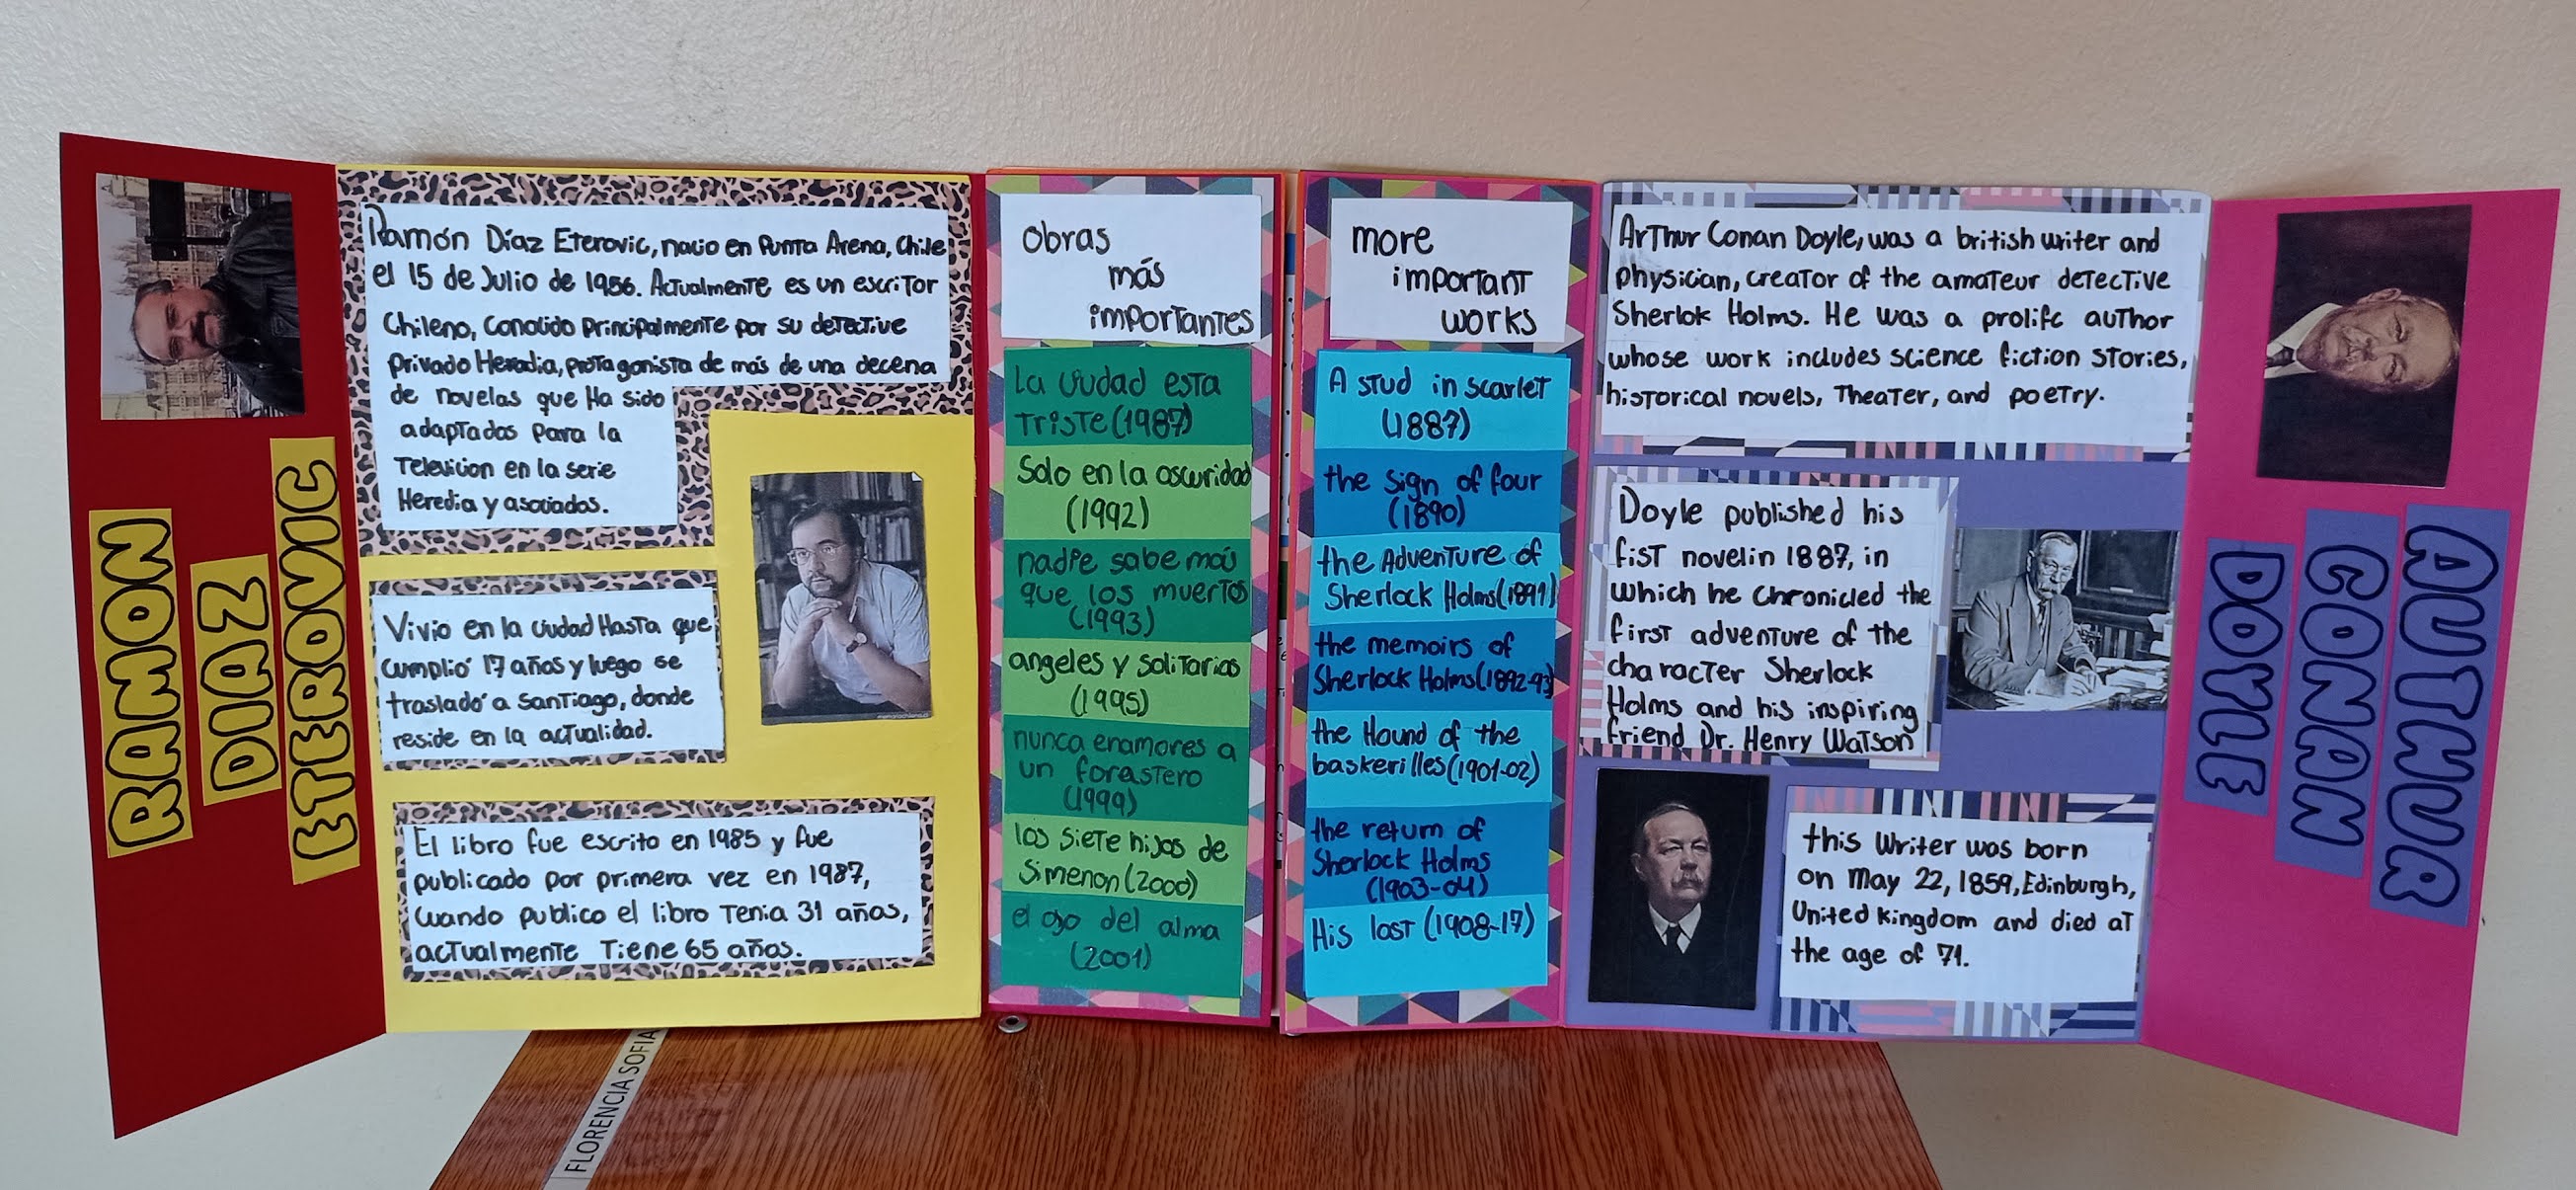 RAMON
DIAZ
ETEROVIC
Ramón Díaz Eterovic, nacio en Punta Arena, Chile
el 15 de Julio de 1956. Actualmente es un escritor
Chileno, Conocido principalmente por su detective
privado Heredia, protagonista de más de una decena
de novelas que Ha sido
adaptadas para la
Television en la serie
Heredia y asociados.
Vivio en la ciudad Hasta que
cumplió 17 años y luego se
trasladó a Santiago, donde
reside en la actualidad.
El libro fue escrito en 1985 y fue
publicado por primera vez en 1987,
cuando publico el libro Tenia 31 años,
actualmente Tiene 65 años.
Obras
más
importantes
La ciudad esta
Triste (1987)
Solo en la oscuridad
(1992)
nadie sabe más
que los muertos
(1993)
angeles y solitarios
(1995)
nunca enamores a
un forastero
(1999)
los siete hijos de
Simenon (2000)
el ojo del alma
(2001)
more
important
works
A stud in scarlet
(1887)
the sign of four
(1890)
the Adventure of
Sherlock Holms (1891)
the memoirs of
Sherlock Holms (1892-93)
the Hound of the
baskerilles (1901-02)
the return of
Sherlock Holms
(1903-04)
His last (1908-17)
Arthur Conan Doyle, was a british writer and
physician, creator of the amateur detective
Sherlok Holms. He was a prolifc author
whose work includes science fiction stories,
historical novels, Theater, and poetry.
Doyle published his
fist novelin 1887, in
which he chronicled the
first adventure of the
character Sherlock
Holms and his inspiring
friend Dr. Henry Watson
this Writer was born
on May 22, 1859, Edinburgh,
United Kingdom and died at
the age of 71.
AUTHUR
CONAN
DOYLE
FLORENCIA SOFIA